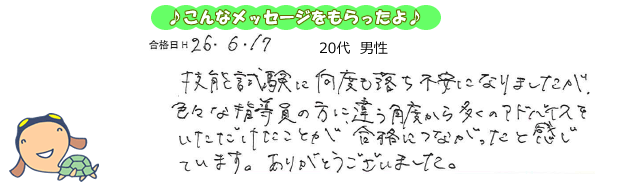 ♪こんなメッセージをもらったよ♪
合格日H 26.6.17 20代 男性
技能試験に何度も落ち不安になりましたが、
色々な指導員の方に違う角度から多くのアドバイスを
いただけたことが合格につながったと感じ
ています。ありがとうございました。